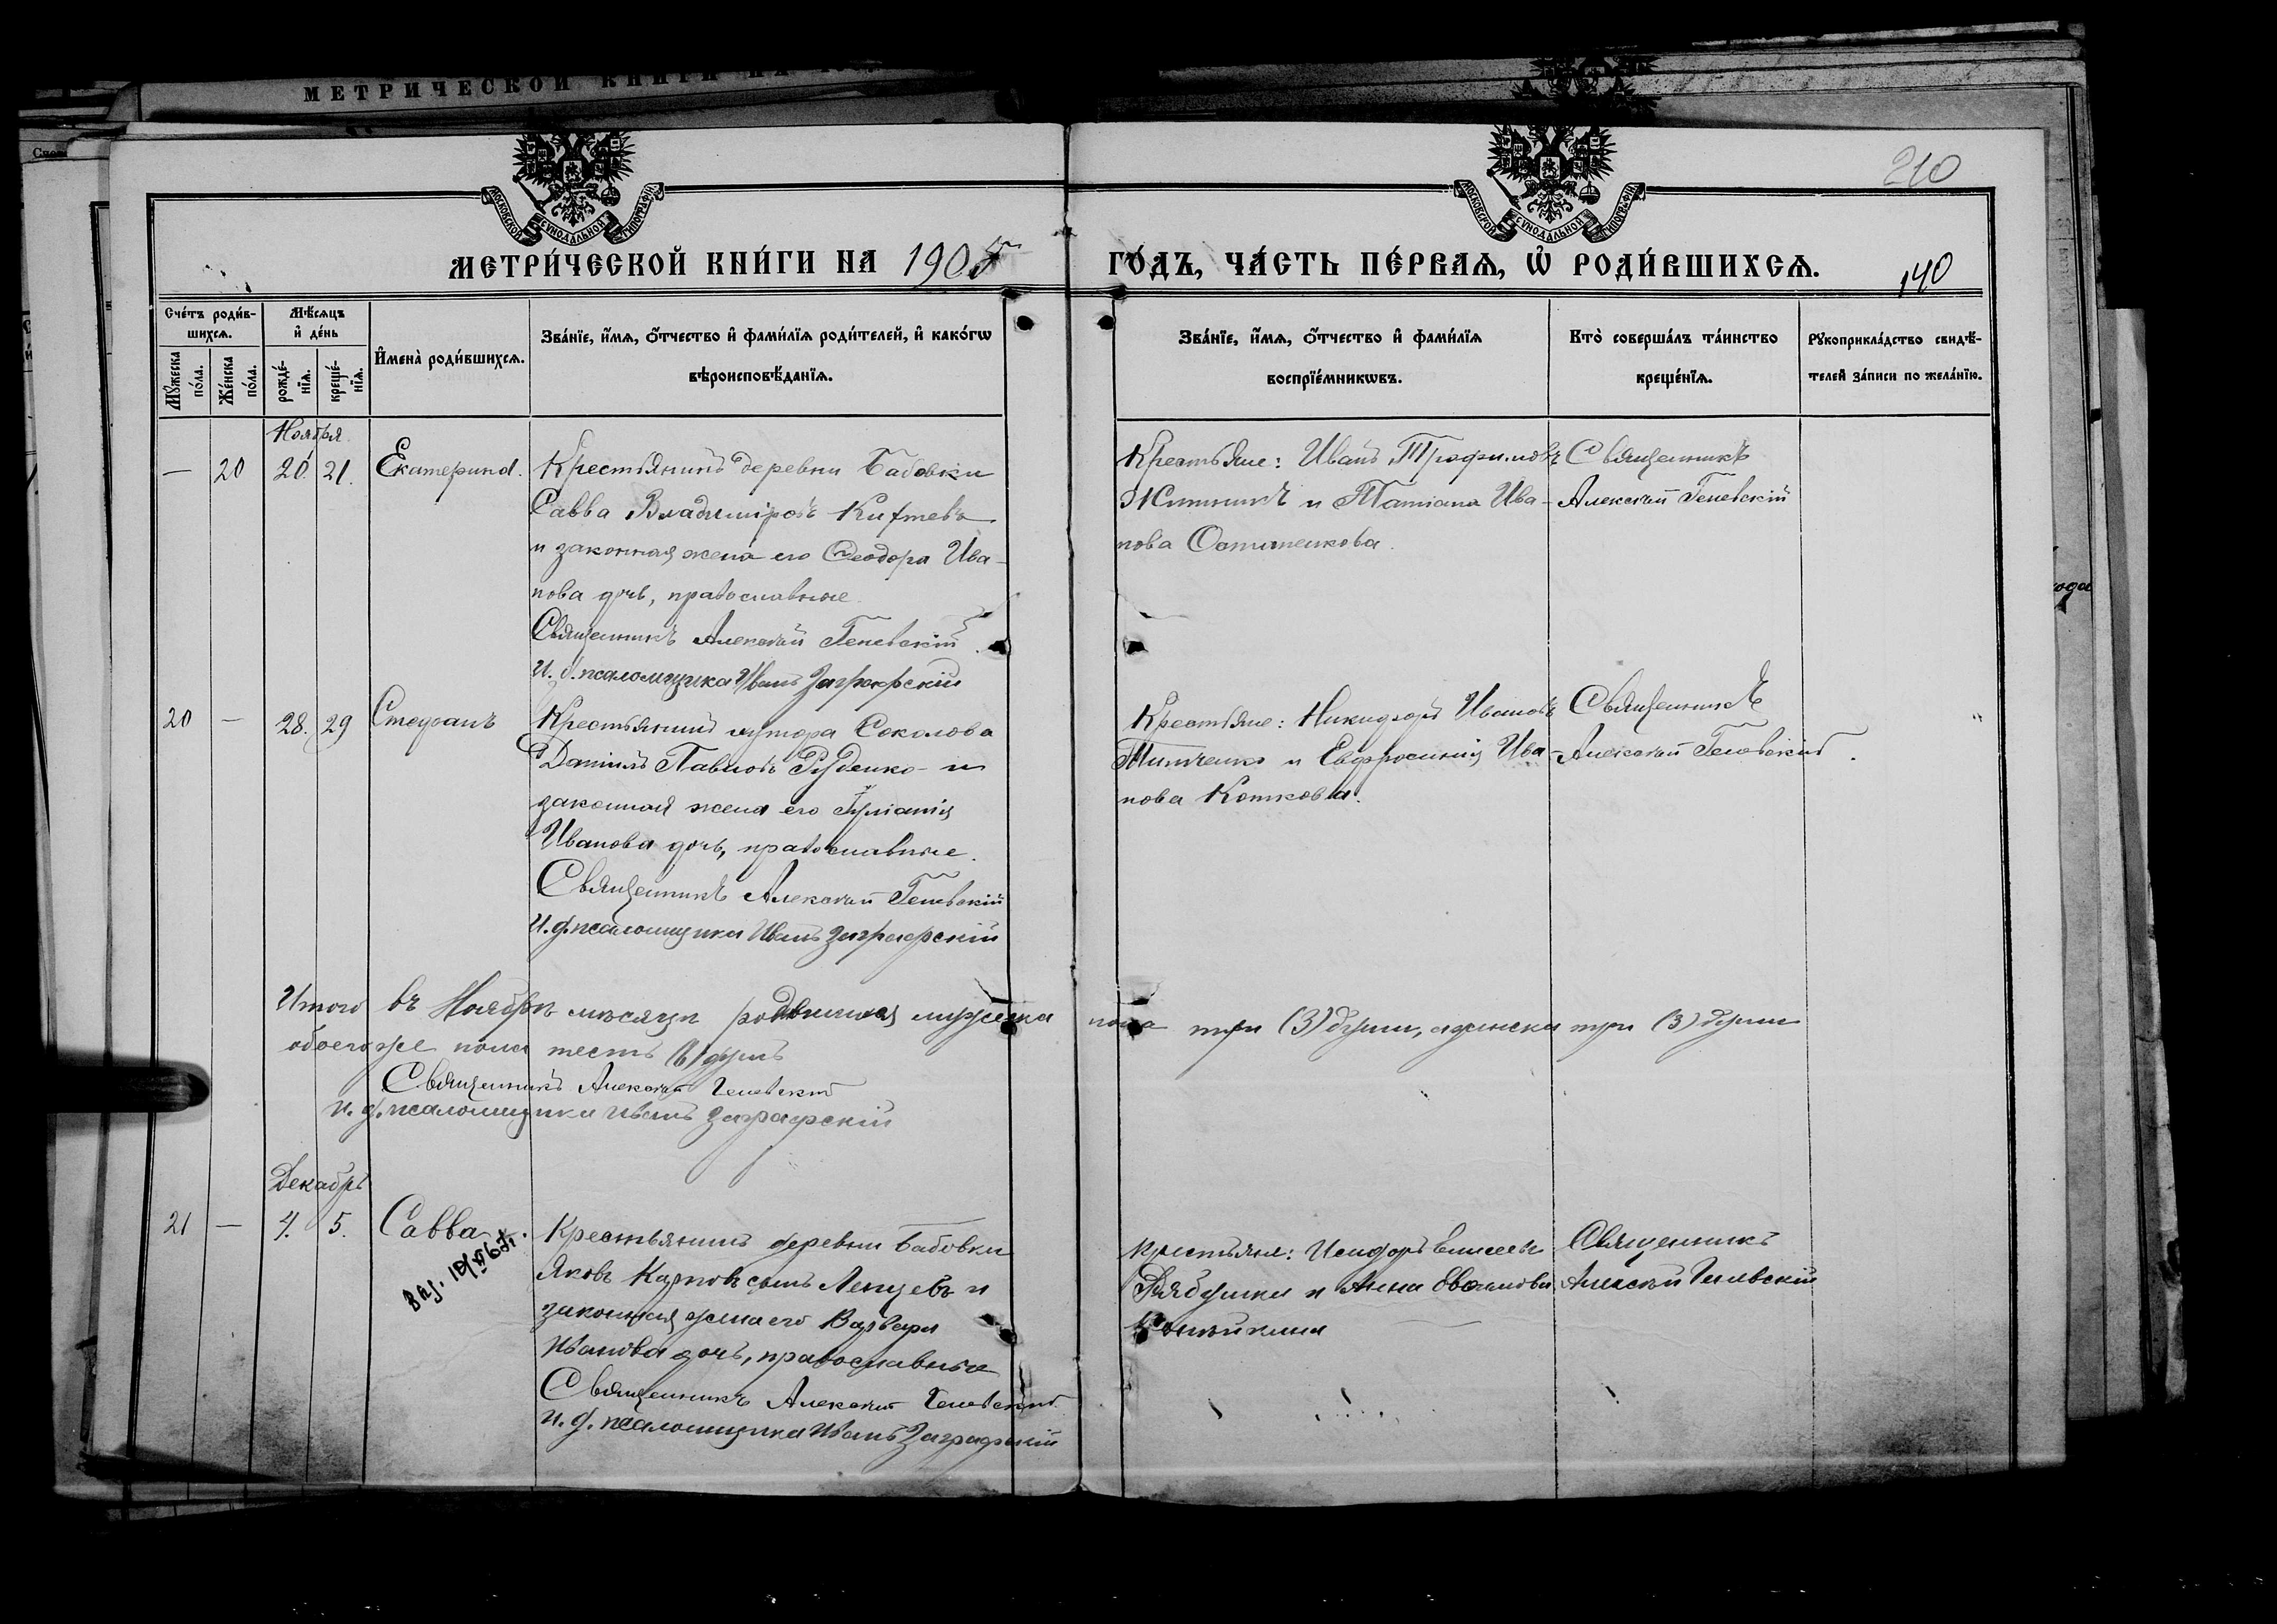 МЕТРИЧЕСКОЙ КНИГИ НА
МОСКОВСКОЙ СѴНОДАЛЬНОЙ ТИПОГРАФІИ
МОСКОВСКОЙ СѴНОДАЛЬНОЙ ТИПОГРАФІИ
210
МЕТРИ́ЧЕСКОЙ КНИ́ГИ НА 1905
ГО́ДЪ, ЧА́СТЬ ПЕ́РВАѦ, Ѡ҆ РОДИ́ВШИХСѦ.
140
Сче́тъ роди́в-
шихсѧ.
Мѣ́сѧцъ
и҆ де́нь
Мꙋ́жеска по́ла.
Же́нска по́ла.
рожде́-
нїѧ.
креще́-
нїѧ.
И҆мена̀ роди́вшихсѧ.
Зва́нїе, и҆́мѧ, ѻ҆́тчество и҆ фами́лїѧ роди́телей, и҆ како́гѡ
вѣроисповѣ́данїѧ.
Зва́нїе, и҆́мѧ, ѻ҆́тчество и҆ фами́лїѧ
воспрїе́мникѡвъ.
Кто̀ соверша́лъ та́инство
креще́нїѧ.
Рꙋкоприкла́дство свидѣ́-
телей за́писи по жела́нїю.
Ноября
— 20 20. 21. Екатерина. Крестьянинъ деревни Бабовки
Савва Владиміровъ
и законная жена его Ѳеодора Ива-
нова дочь, православные.
Священникъ Алексѣй Геневскій
И. д. псаломщика Иванъ Заграфскій
Крестьяне: Иванъ Трофимовъ
и Татіана Ива-
нова
Священникъ
Алексѣй Геневскій
20 — 28. 29 Стефанъ Крестьянинъ хутора Соколова
Даніилъ Павловъ Руденко и
законная жена его
Иванова дочь, православные.
Священникъ Алексѣй Геневскій
И. д. псаломщика Иванъ Заграфскій
Крестьяне: Никифоръ Ивановъ
Титченко и Евфросинія Ива-
нова Коткова.
Священникъ
Алексѣй Геневскій.
Итого въ Ноябрѣ мѣсяцѣ родившихся мужеска пола три (3) души, женска три (3) души
обоего же пола шесть (6) душъ
Священникъ Алексѣй Геневскій
И. д. псаломщика Иванъ Заграфскій
Декабрь
21 — 4. 5. Савва. Крестьянинъ деревни Бабовки
Яковъ Карповъ сынъ и
законная жена его Варвара
Иванова дочь, православные
Священникъ Алексѣй Геневскій
И. д. псаломщика Иванъ Заграфскій
Крестьяне: Исидоръ Елисеевъ
и Анна
Священникъ
Алексѣй Геневскій